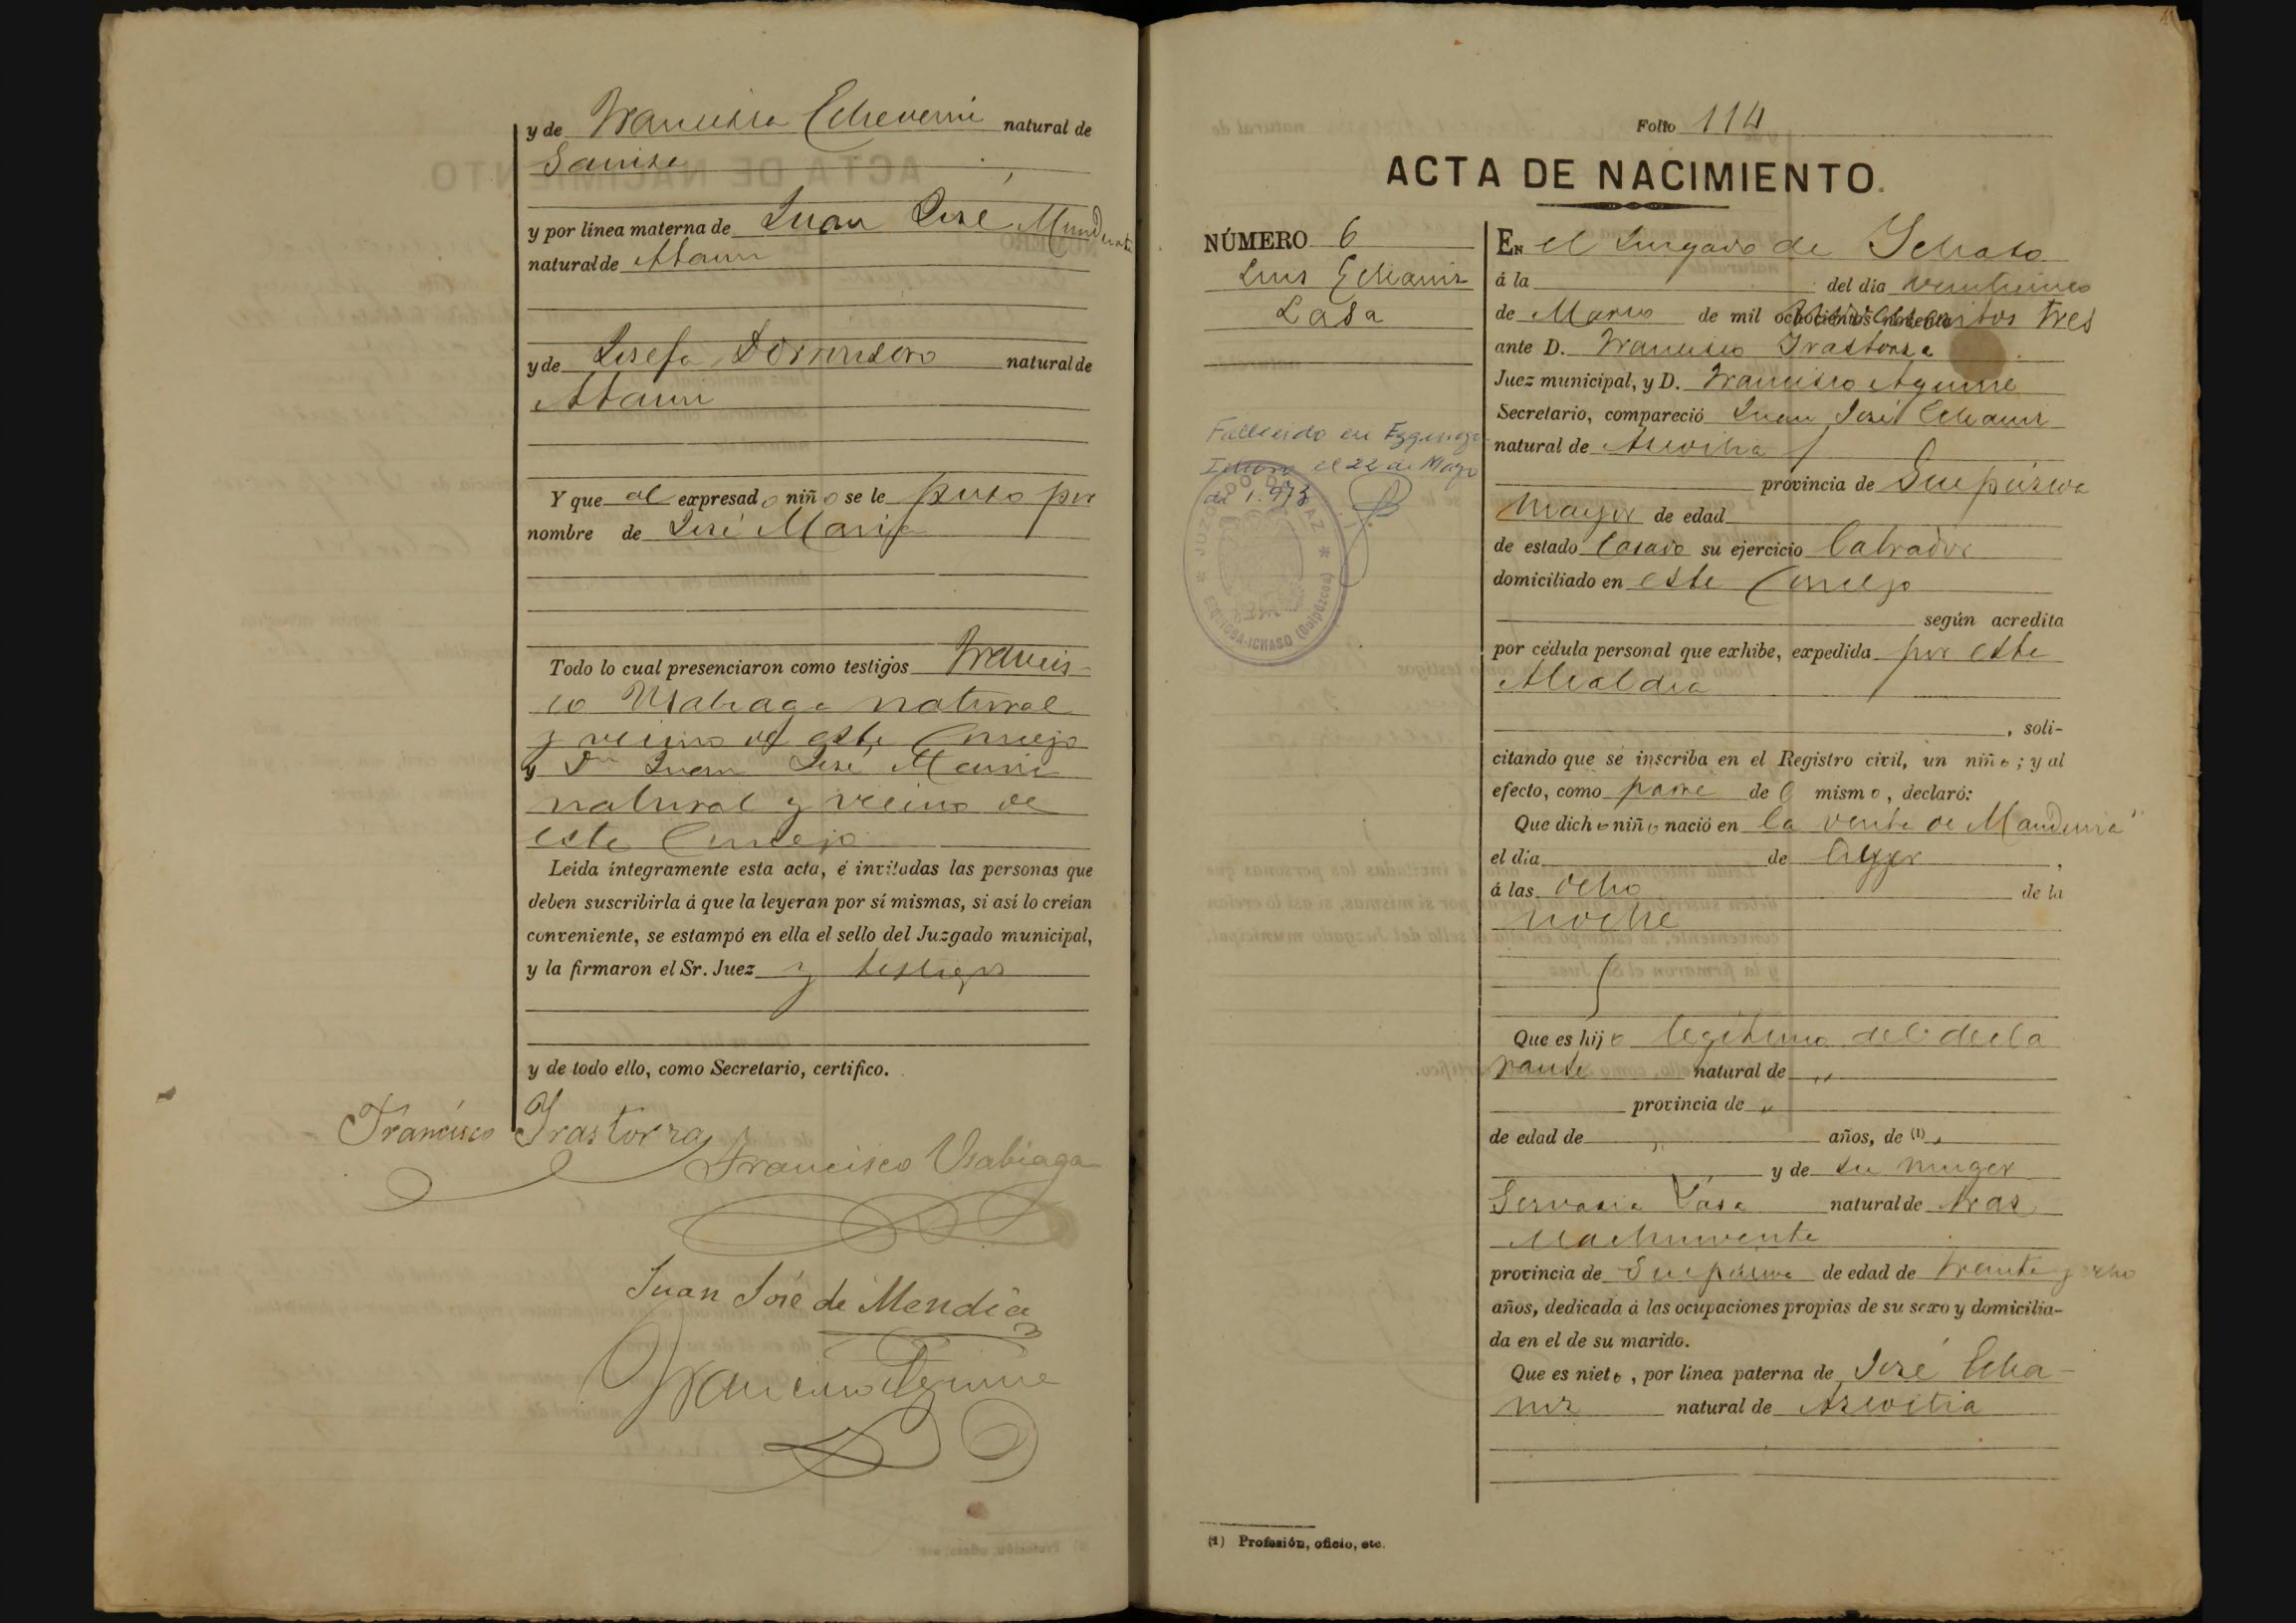 y de Francisca Echeverria natural de
Gainza
y por línea materna de Juan José Mendizabal
natural de Ataun
y de Josefa Dorronsoro natural de
Ataun
Y que al expresado niño se le puso por
nombre de José Maria
Todo lo cual presenciaron como testigos Francis-
co Usabiaga natural
y vecino de este Concejo
y Dn Juan José Mendia
natural y vecino de
este Concejo
Leida íntegramente esta acta, é invitadas las personas que
deben suscribirla á que la leyeran por sí mismas, si así lo creían
conveniente, se estampó en ella el sello del Juzgado municipal,
y la firmaron el Sr. Juez y testigos
y de todo ello, como Secretario, certifico.
Francisco Yrastorza
Francisco Usabiaga
Juan José de Mendia
Francisco Aguirre
Folio 114
ACTA DE NACIMIENTO.
NÚMERO 6
Luis Echaniz
Lasa
Fallecido en Ezquioga
Ichaso el 22 de Mayo
de 1.973
JUZGADO DE PAZ
EZQUIOGA-ICHASO (Guipúzcoa)
EN el Juzgado de Ichaso
á la del dia veinticinco
de Marzo de mil ochocientos noventa novecientos tres
ante D. Francisco Irastorza
Juez municipal, y D. Francisco Aguirre
Secretario, compareció Juan José Echaniz
natural de Azcoitia
provincia de Guipúzcoa
mayor de edad
de estado Casado su ejercicio labrador
domiciliado en este Concejo
según acredita
por cédula personal que exhibe, expedida por esta
Alcaldia
, soli-
citando que se inscriba en el Registro civil, un niño; y al
efecto, como padre del mismo, declaró:
Que dicho niño nació en la venta de Mandubia"
el dia de ayer,
á las ocho de la
noche
Que es hijo legítimo del decla
rante natural de "
provincia de "
de edad de " años, de (1) "
y de su muger
Gervasia Lasa natural de Araz
Machinventa
provincia de Guipúzcoa de edad de treinta y ocho
años, dedicada á las ocupaciones propias de su sexo y domicilia-
da en el de su marido.
Que es nieto, por línea paterna de José Echa-
niz natural de Azcoitia
(1) Profesión, oficio, etc.